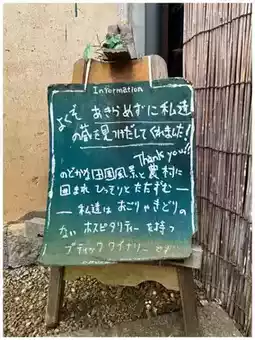 Information
よくぞ あきらめずに私達
の蔵を見つけだしてくれました!
Thank you!!
のどかな田園風景と農村に
囲まれ ひっそりとたたずむ—
— 私達は おごりやきどりの
ない ホスピタリティーを持つ
ブティックワイナリー です